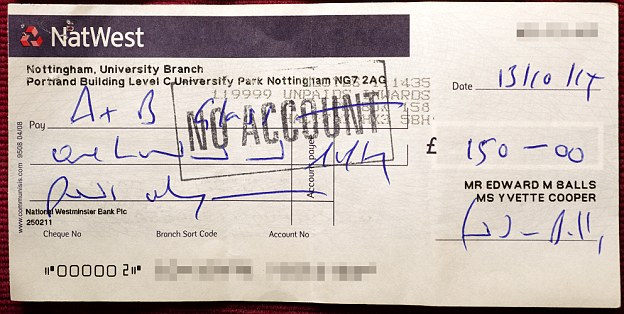 NatWest
Nottingham, University Branch
Portland Building Level C University Park Nottingham NG7 2AG
1435
119999 UNPAIDS INWARDS
458
58H
NO ACCOUNT
Date 13/10/14
Pay A + B
one hundred and fifty
pounds only
Account payee
£ 150 - 00
MR EDWARD M BALLS
MS YVETTE COOPER
www.communisis.com 9508 04/08
National Westminster Bank Plc
250211
Cheque No Branch Sort Code Account No
"000002"